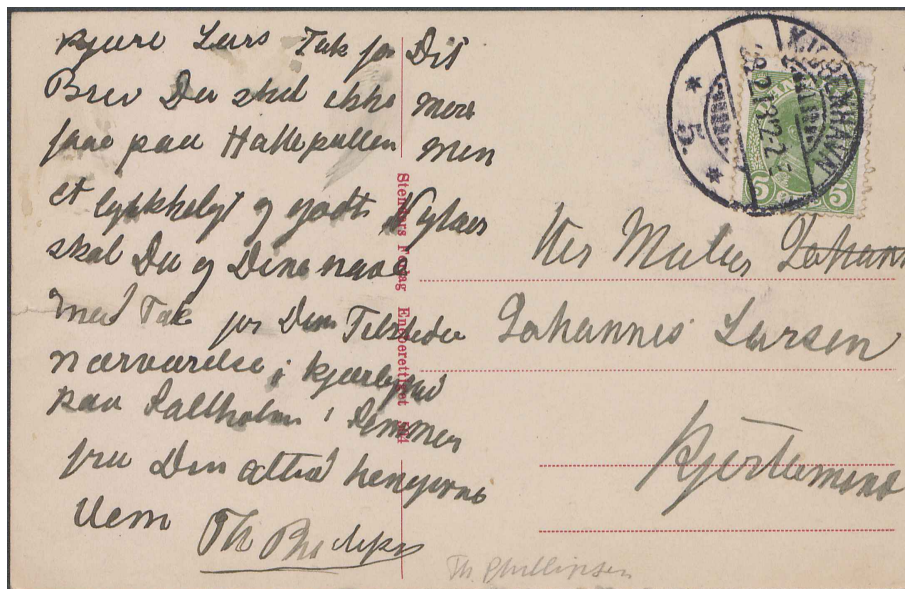 Kjære Lars Tak for Dit
Brev Du skal ikke mere
faae paa Hattepullen men
et lykkeligt og godt Nytaar
skal Du og Dine have
med Tak for Din Tilstedeværelse
Nærværelse i Kjærlighed
paa Saltholm i Sommer
fra Din altid hengivne
Ven
Th
Th. Phillipsen
Stenders Forlag Eneberettiget
KJØBENHAVN
5.
5 5
Her Maler Johann
Johannes Larsen
Kjerteminde